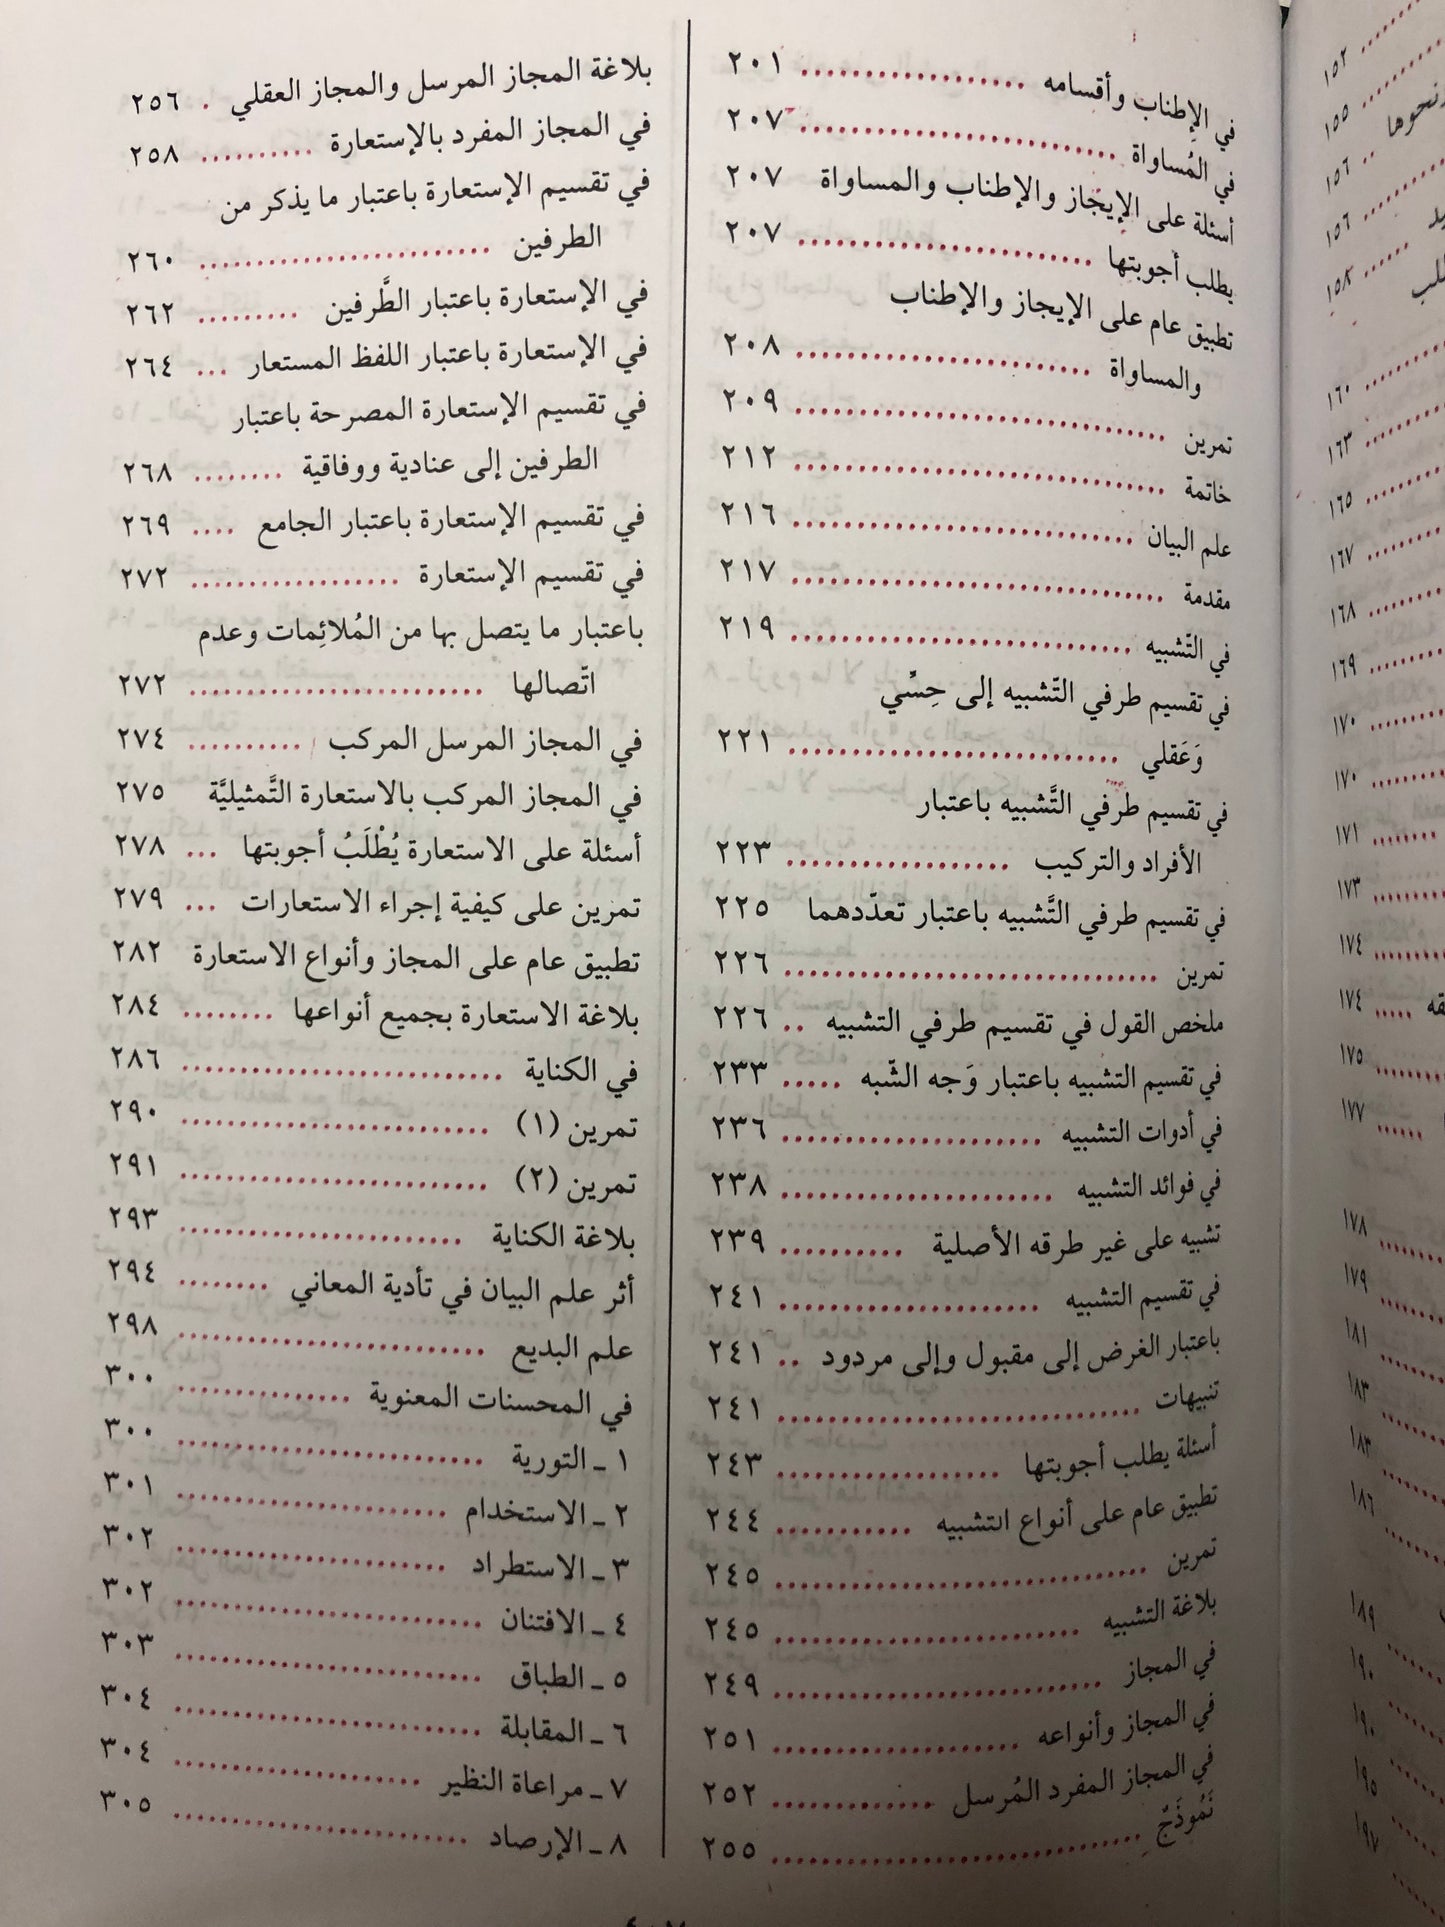 في الإطناب وأقسامه .................. ٢٠١
في المُساواة .......................... ٢٠٧
أسئلة على الإيجاز والإطناب والمساواة ٢٠٧
يطلب أجوبتها ........................ ٢٠٧
تطبيق عام على الإيجاز والإطناب
والمساواة ........................ ٢٠٨
تمرين .............................. ٢٠٩
خاتمة .............................. ٢١٢
علم البيان ........................... ٢١٦
مقدمة .............................. ٢١٧
في التّشبيه ........................... ٢١٩
في تقسيم طرفي التّشبيه إلى حِسِّي
وَعَقلي ........................... ٢٢١
في تقسيم طرفي التَّشبيه باعتبار
الأفراد والتركيب .................. ٢٢٣
في تقسيم طرفي التَّشبيه باعتبار تعدّدهما ٢٢٥
تمرين .............................. ٢٢٦
ملخص القول في تقسيم طرفي التشبيه .. ٢٢٦
في تقسيم التشبيه باعتبار وَجه الشّبه ..... ٢٣٣
في أدوات التشبيه ..................... ٢٣٦
في فوائد التشبيه ...................... ٢٣٨
تشبيه على غير طرقه الأصلية .......... ٢٣٩
في تقسيم التشبيه ..................... ٢٤١
باعتبار الغرض إلى مقبول وإلى مردود .. ٢٤١
تنبيهات ............................. ٢٤١
أسئلة يطلب أجوبتها .................. ٢٤٣
تطبيق عام على أنواع التشبيه ........... ٢٤٤
تمرين .............................. ٢٤٥
بلاغة التشبيه ........................ ٢٤٥
في المجاز ........................... ٢٤٩
في المجاز وأنواعه .................... ٢٥١
في المجاز المفرد المُرسل ............. ٢٥٢
نَمُوذَجٌ .............................. ٢٥٥
بلاغة المجاز المرسل والمجاز العقلي . ٢٥٦
في المجاز المفرد بالإستعارة .......... ٢٥٨
في تقسيم الإستعارة باعتبار ما يذكر من
الطرفين ........................ ٢٦٠
في الإستعارة باعتبار الطَّرفين ......... ٢٦٢
في الإستعارة باعتبار اللفظ المستعار ... ٢٦٤
في تقسيم الإستعارة المصرحة باعتبار
الطرفين إلى عنادية ووفاقية ........ ٢٦٨
في تقسيم الإستعارة باعتبار الجامع .... ٢٦٩
في تقسيم الإستعارة .................. ٢٧٢
باعتبار ما يتصل بها من المُلائِمات وعدم
اتّصالها ........................ ٢٧٢
في المجاز المرسل المركب .......... ٢٧٤
في المجاز المركب بالاستعارة التَّمثيليَّة ٢٧٥
أسئلة على الاستعارة يُطْلَبُ أجوبتها ... ٢٧٨
تمرين على كيفية إجراء الاستعارات ... ٢٧٩
تطبيق عام على المجاز وأنواع الاستعارة ٢٨٢
بلاغة الاستعارة بجميع أنواعها ........ ٢٨٤
في الكناية .......................... ٢٨٦
تمرين (١) ......................... ٢٩٠
تمرين (٢) ......................... ٢٩١
بلاغة الكناية ....................... ٢٩٣
أثر علم البيان في تأدية المعاني ........ ٢٩٤
علم البديع ......................... ٢٩٨
في المحسنات المعنوية .............. ٣٠٠
١ ـ التورية ......................... ٣٠٠
٢ ـ الاستخدام ...................... ٣٠١
٣ ـ الاستطراد ...................... ٣٠٢
٤ ـ الافتنان ......................... ٣٠٢
٥ ـ الطباق ......................... ٣٠٣
٦ ـ المقابلة ......................... ٣٠٤
٧ ـ مراعاة النظير .................... ٣٠٤
٨ ـ الإرصاد ........................ ٣٠٥